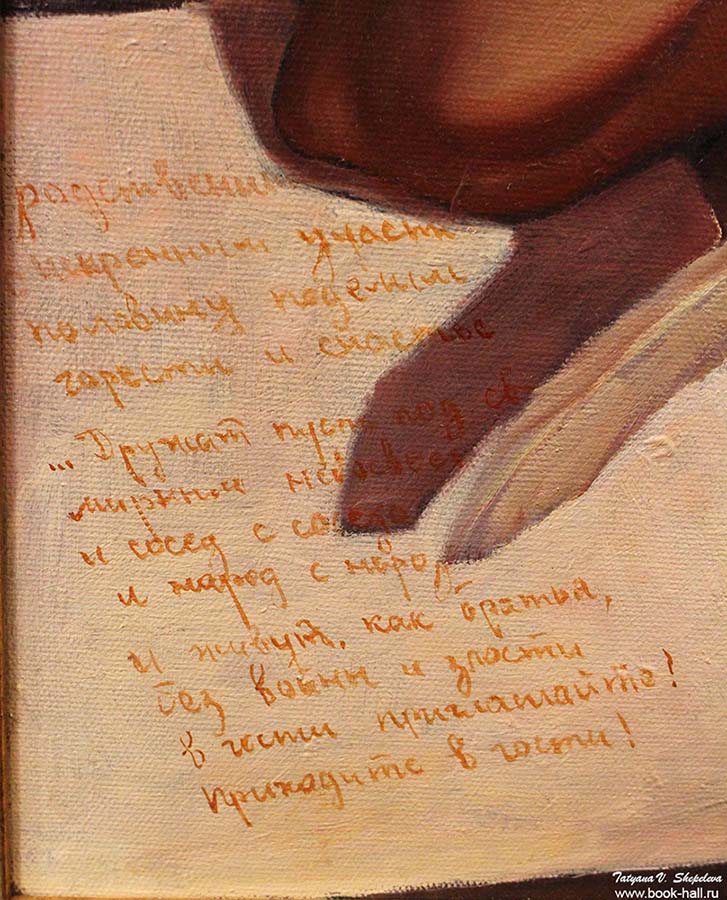 родственни
искренним участи
половину поделить
горести и счастье
... Дружат пусть под св
мирным небосвес
и сосед с соседо
и народ с народ
и живут, как братья,
без войны и злости
в гости приглашайте!
Приходите в гости!
Tatyana V. Shepeleva
www.book-hall.ru